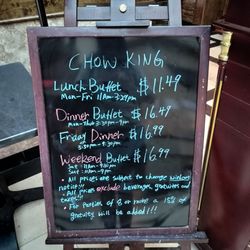 CHOW KING
Lunch Buffet $11.49
Mon-Fri 11am-3:29pm
Dinner Buffet $16.49
Mon-Thur 3:30pm-9pm
Friday Dinner $16.99
3:30pm-9:30pm
Weekend Buffet $16.99
Sat 11am-
Sun 11am-9pm
• All Prices are subject to change without
notice!!
• All Prices exclude beverages, gratuities and
taxes!!
• For Parties of 8 or more a 15% of
gratuity will be added!!!